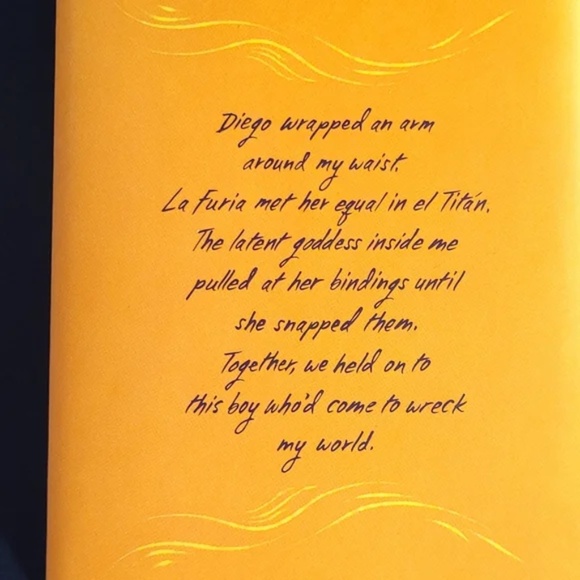 Diego wrapped an arm
around my waist.
La Furia met her equal in el Titán.
The latent goddess inside me
pulled at her bindings until
she snapped them.
Together, we held on to
this boy who'd come to wreck
my world.